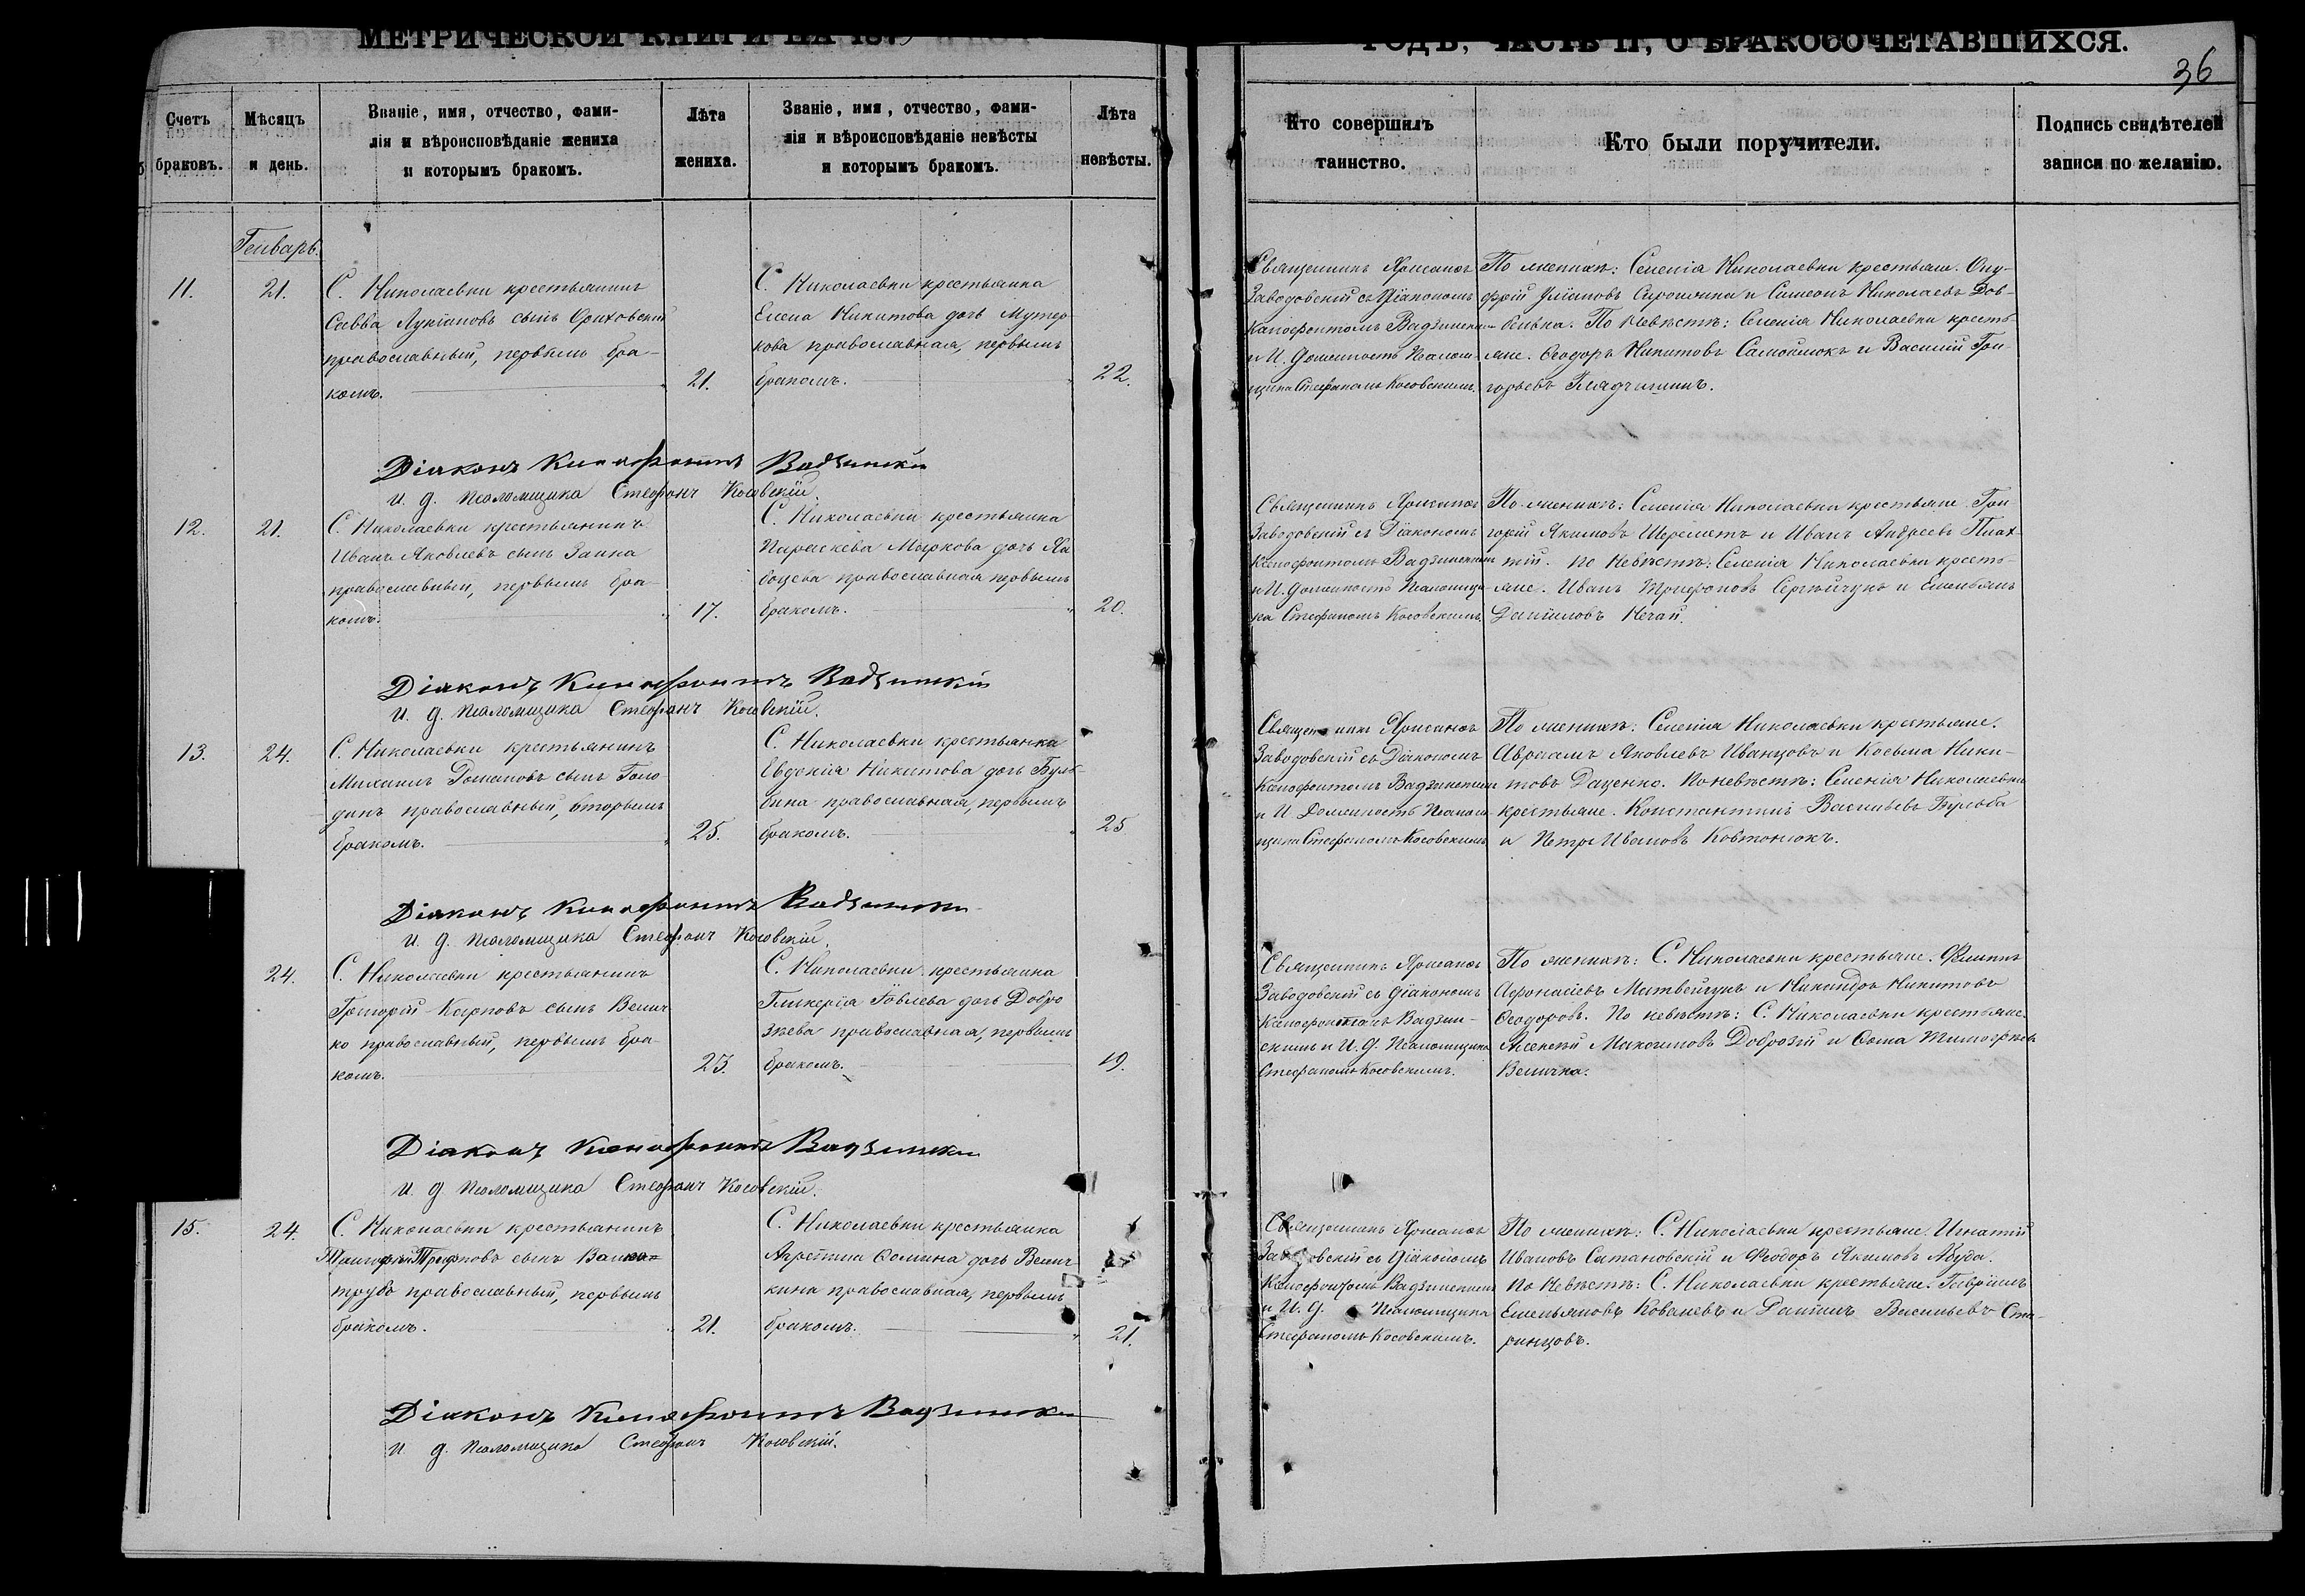 МЕТРИЧЕСКОЙ КНИГИ НА 187
ГОДЪ, ЧАСТЬ II, О БРАКОСОЧЕТАВШИХСЯ.
36
Счетъ браковъ.
Мѣсяцъ и день.
Званіе, имя, отчество, фами-
лія и вѣроисповѣданіе жениха
и которымъ бракомъ.
Лѣта жениха.
Званіе, имя, отчество, фами-
лія и вѣроисповѣданіе невѣсты
и которымъ бракомъ.
Лѣта невѣсты.
Кто совершилъ
таинство.
Кто были поручители.
Подпись свидѣтелей
записи по желанію.
Генварь.
11.
21.
С. Николаевки крестьянинъ
Савва Лукіановъ сынъ Ориховскій
православный, первымъ бра-
комъ.
21.
С. Николаевки крестьянка
Елена Никитова дочь Мутер-
кова православная, первымъ
бракомъ.
22.
Священникъ
Заводовскій съ Діакономъ
Ксенофонтомъ Вадзинскимъ
и И. Должность Псалом-
щика Стефаномъ Косовскимъ.
По женихѣ: Селенія Николаевки крестьяне. Ону-
фрій Уліановъ Сиротина и Симеонъ Николаевъ Дов-
бенька. По невѣстѣ: Селенія Николаевки кресть-
яне. Ѳеодоръ Никитовъ Самойлюкъ и Василій Гри-
горьевъ
Діаконъ Ксенофонтъ Вадзинскій
И. д. псаломщика Стефанъ Косовскій.
12.
21.
С. Николаевки крестьянинъ
Иванъ Яковлевъ сынъ Заика
православный, первымъ бра-
комъ.
17.
С. Николаевки крестьянка
Параскева Маркова дочь Ха-
боцева православная первымъ
бракомъ.
20.
Священникъ
Заводовскій съ Діакономъ
Ксенофонтомъ Вадзинскимъ
и И. Должность Псаломщи-
ка Стефаномъ Косовскимъ.
По женихѣ: Селенія Николаевки крестьяне Гри-
горій Якимовъ Шереметъ и Иванъ Андреевъ Плах-
тій. По Невѣстѣ: Селенія Николаевки кресть-
яне. Иванъ Трифоновъ Сергѣйчукъ и Емельянъ
Даниловъ Нечай.
Діаконъ Ксенофонтъ Вадзинскій
И. д. псаломщика Стефанъ Косовскій.
13.
24.
С. Николаевки крестьянинъ
Михаилъ Романовъ сынъ Голо-
данъ православный, вторымъ
бракомъ.
25.
С. Николаевки крестьянка
Евдокія Никитова дочь Буль-
бина православная, первымъ
бракомъ.
25
Священникъ
Заводовскій съ Діакономъ
Ксенофонтомъ Вадзинскимъ
и И Должность Псалом-
щика Стефаномъ Косовскимъ
По женихѣ: Селенія Николаевки крестьяне.
Авраамъ Яковлевъ Иванцовъ и Косьма Ники-
товъ Даценко. По невѣстѣ: Селенія Николаевки
крестьяне. Константинъ Васильевъ Бульба
и Петръ Ивановъ Ковтонюкъ.
Діаконъ Ксенофонтъ Вадзинскій
И. д. псаломщика Стефанъ Косовскій.
24.
С. Николаевки крестьянинъ
Григорій Карповъ сынъ Велич-
ко православный, первымъ бра-
комъ.
23.
С. Николаевки крестьянка
Гликерія Іовлева дочь Добро
зѣева православная, первымъ
бракомъ.
19.
Священникъ
Заводовскій съ Діакономъ
Ксенофонтомъ Вадзин-
скимъ и И. Д. Псаломщика
Стефаномъ Косовскимъ.
По женихѣ: С. Николаевки крестьяне. Филиппъ
Афонасіевъ Матвейчукъ и Никандръ Никитовъ
Ѳеодоровъ. По невѣстѣ: С. Николаевки крестьяне
Алексѣй Максимовъ Доброзій и Ѳома Тимоѳеевъ
Величко.
Діаконъ Ксенофонтъ Вадзинскій
И. д. псаломщика Стефанъ Косовскій.
15.
24.
С. Николаевки крестьянинъ
сынъ
православный, первымъ
бракомъ.
21.
С. Николаевки крестьянка
Агрепина Ѳомина дочь Велич-
кина православная, первымъ
бракомъ.
21.
Священникъ
Заводовскій съ Діакономъ
Ксенофонтомъ Вадзинскимъ
и И. Д. Псаломщика
Стефаномъ Косовскимъ.
По женихѣ: С. Николаевки крестьяне. Игнатій
Ивановъ Сатановскій и Ѳеодоръ Якимовъ Абуда.
По Невѣстѣ: С. Николаевки крестьяне. Гавріилъ
Емельяновъ Ковалевъ и Даніилъ Васильевъ Ста-
ринцовъ.
Діаконъ Ксенофонтъ Вадзинскій
И д. псаломщика Стефанъ Косовскій.